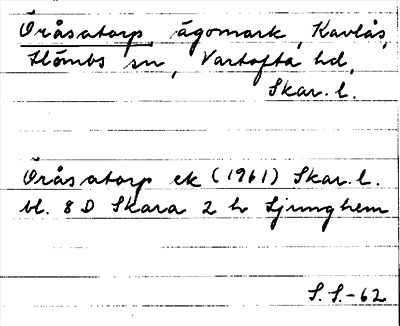 Öråsatorp, ägomark, Kavlås,
Slömbs sn, Vartofta hd,
Skar. l.
Öråsatorp ek (1961) Skar. l.
bl. 8 D Skara 2 h Ljunghem
S. S.-62